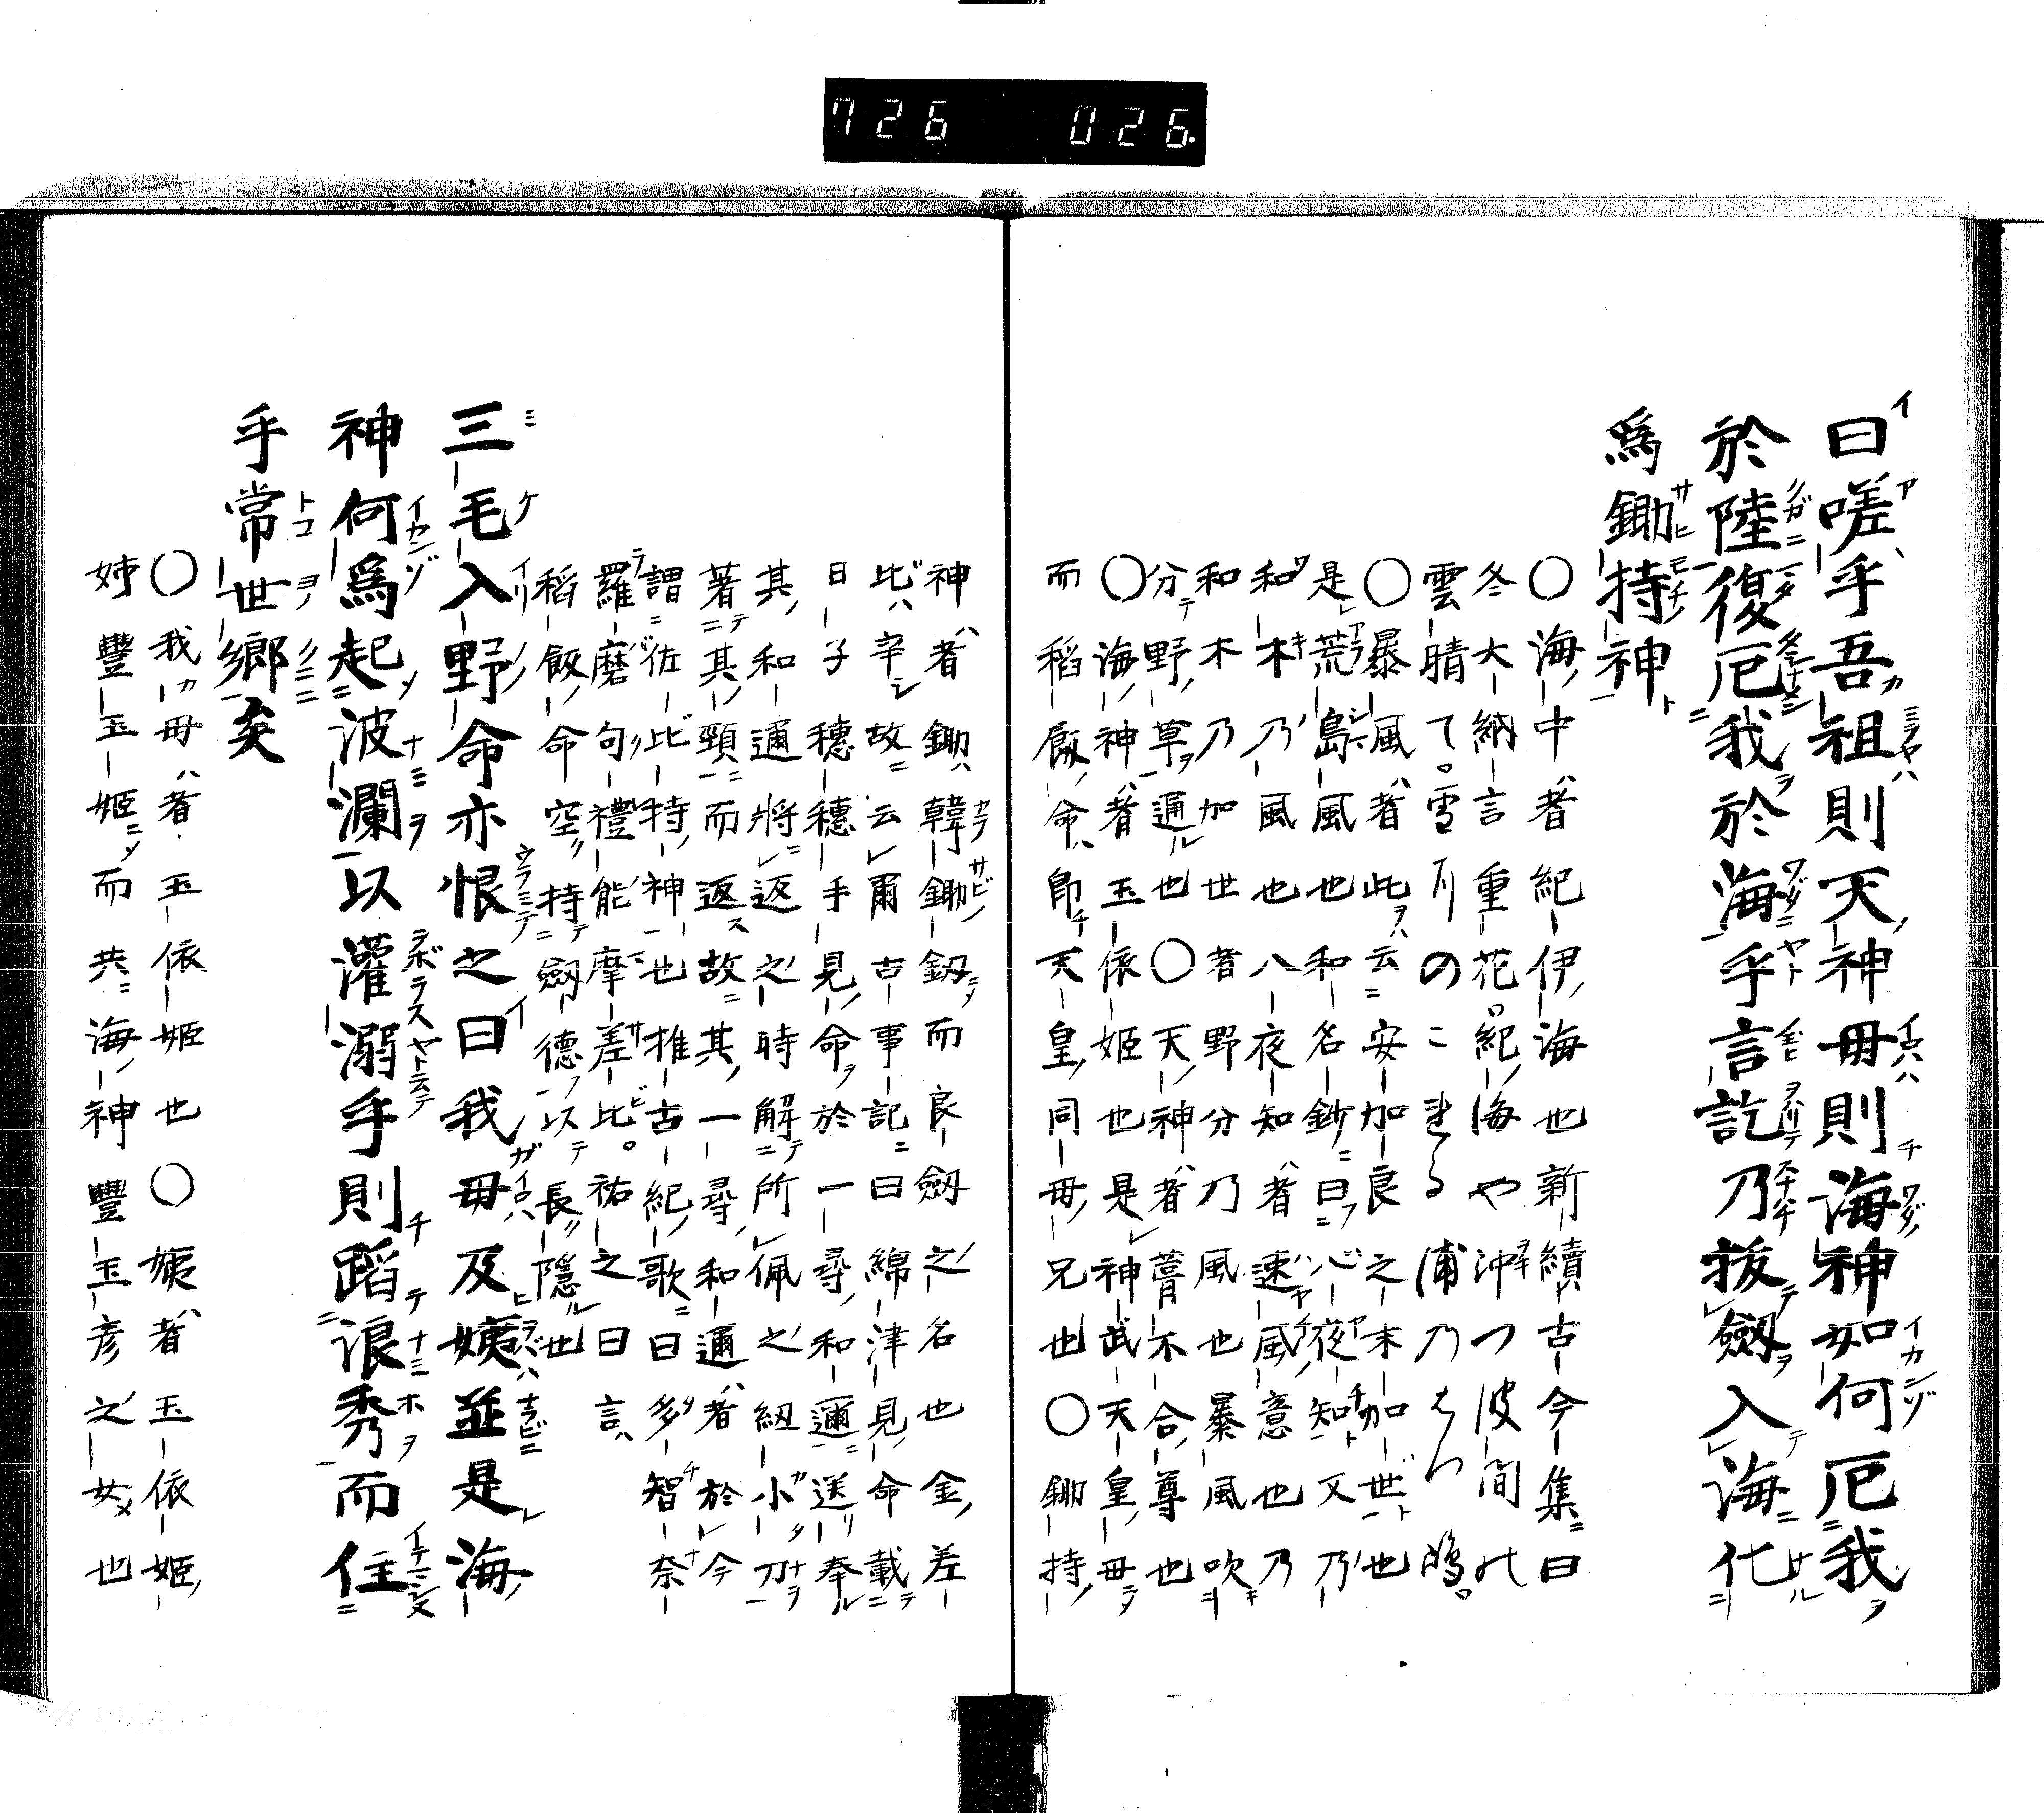 726 026
曰嗟乎吾祖則天神母則海神如何厄我
於陸復厄我於海乎言訖乃拔劒入海化
爲鋤持神
〇海中者紀伊海也新續古今集曰
冬大納言重花。紀海や沖つ波間の
雲晴て。雪
〇暴風者此云安加良之末加世也
是荒島風也和名鈔曰心夜知又乃
和木乃風也八夜知者速風意也乃
和木乃加世者野分乃風也暴風吹
分野草通也〇天神者葺不合尊也
〇海神者玉依姬也是神武天皇母
而稻飯命卽天皇同母兄也〇鋤持
神者鋤韓鋤釼而良劔之名也金差
比辛故云爾古事記曰綿津見命載
日子穗穗手見命於一尋和邇送奉
其和邇將返之時解所佩之紐小刀
著其頸而返故其一尋和邇者於今
謂佐比持神也推古紀歌曰多智奈
羅磨句禮能摩差比。祐之曰言
稻飯命空持劔德以長隱也
三毛入野命亦恨之曰我母及姨並是海
神何爲起波瀾以灌溺乎則蹈浪秀而住
乎常世鄕矣
〇我母者玉依姬也〇姨者玉依姬
姉豐玉姬而共海神豐玉彥之女也